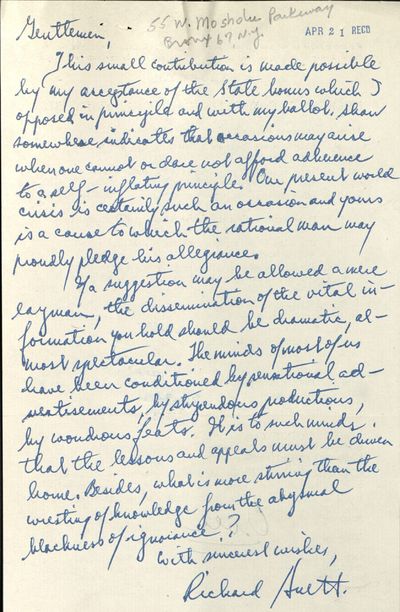 55 W. Mosholu Parkway
Bronx 67, N.Y.
APR 21 RECD
Gentlemen,
This small contribution is made possible
by my acceptance of the State bonus which I
opposed in principle and with my ballot. Shaw
somewhere indicates that occasions may arise
when one cannot or dare not afford adherence
to a self-inflating principle. Our present world
crisis is certainly such an occasion and yours
is a cause to which the rational man may
proudly pledge his allegiance.
If a suggestion may be allowed a mere
layman, the dissemination of the vital in-
formation you hold should be dramatic, al-
most spectacular. The minds of most of us
have been conditioned by sensational ad-
vertisements, by stupendous productions,
by wondrous feats. It is to such minds
that the lessons and appeals must be driven
home. Besides, what is more stirring than the
wresting of knowledge from the abysmal
blackness of ignorance?
With sincerest wishes,
Richard